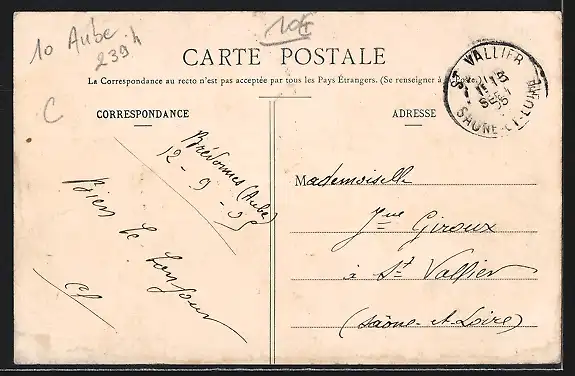 10 Aube.
239h
10€
CARTE POSTALE
La Correspondance au recto n'est pas acceptée par tous les Pays Étrangers. (Se renseigner à la Poste.)
C
CORRESPONDANCE
ADRESSE
ST VALLIER
SAÔNE-ET-LOIRE
Brévonnes (Aube)
12-9-05
Bien le bonjour
Mademoiselle
Jne Giroux
à St Vallier
(Saône-et-Loire)